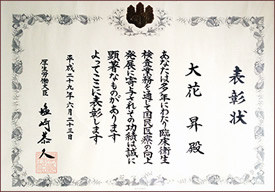 表彰状
大花 昇 殿
あなたは多年にわたり臨床衛生
検査業務を通じて国民医療の向上
発展に寄与されその功績は誠に
顕著なものがあります
よってここに表彰します
平成二十九年六月二十三日
厚生労働大臣 塩崎恭久